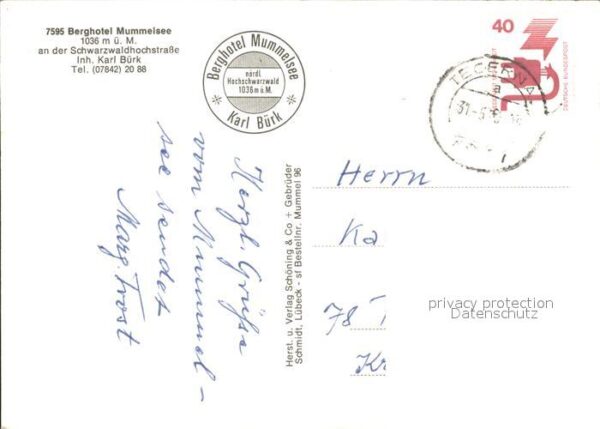 7595 Berghotel Mummelsee
1036 m ü. M.
an der Schwarzwaldhochstraße
Inh. Karl Bürk
Tel. (07842) 20 88
Berghotel Mummelsee
nördl.
Hochschwarzwald
1036 m ü. M.
Karl Bürk
40
DEUTSCHE BUNDESPOST
Herzl. Grüße
vom Mummel-
see sendet
Marg. Trost
Herst. u. Verlag Schöning & Co + Gebrüder
Schmidt, Lübeck - sf Bestellnr. Mummel 96
Herrn
Ka
78
Kr
privacy protection
Datenschutz